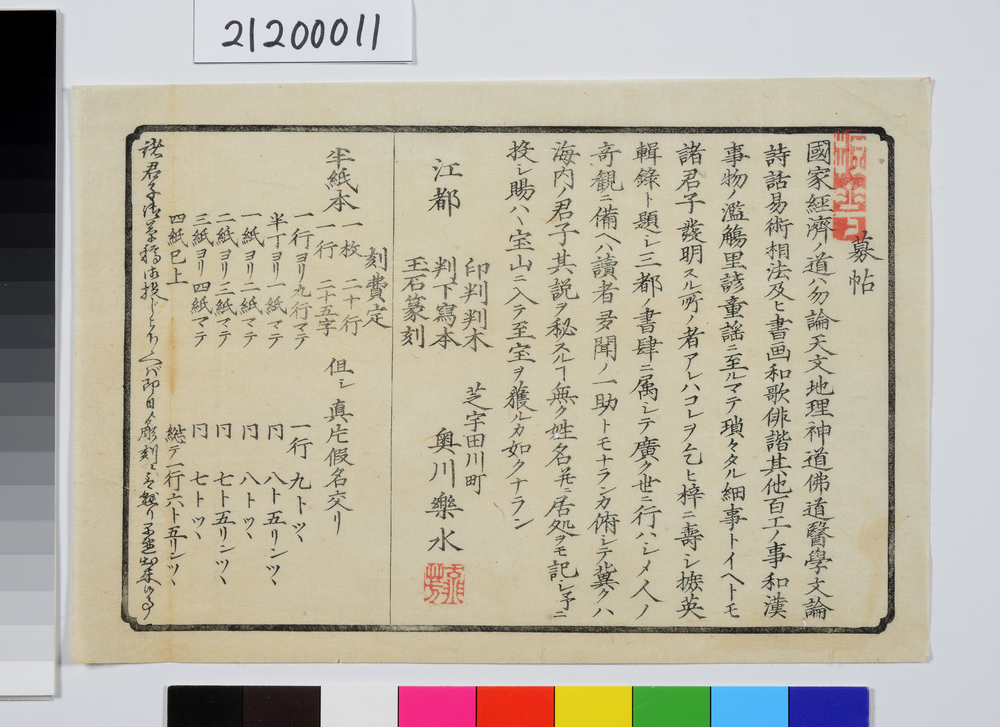 21200011
募帖
國家經濟ノ道ハ勿論天文地理神道佛道醫學文論
詩話易術相法及ヒ書画和歌俳諧其他百工ノ事和漢
事物ノ濫觴里諺童謡ニ至ルマテ瑣々タル細事トイヘトモ
諸君子發明スル所ノ者アレハコレヲ乞ヒ梓ニ壽シ摭英
輯錄ト題シ三都ノ書肆ニ属シテ廣ク世ニ行ハシメ人ノ
奇観ニ備ヘハ讀者多聞ノ一助トモナランカ俯シテ冀クハ
海内ノ君子其説ヲ秘スルヿ無ク姓名并ニ居処ヲモ記シ予ニ
投シ賜ハヽ宝山ニ入テ至宝ヲ獲ルカ如クナラン
印判判木
江都 判下寫本
玉石篆刻
芝宇田川町
奥川樂水
刻費定
半紙本 一枚 二十行
一行 二十五字 但シ真片假名交リ
一行ヨリ九行マテ 一行 九トツヽ
半丁ヨリ一紙マテ 同 八ト五リンツヽ
一紙ヨリ二紙マテ 同 八トツヽ
二紙ヨリ三紙マテ 同 七ト五リンツヽ
三紙ヨリ四紙マテ 同 七トツヽ
四紙已上 總テ一行六ト五リンツヽ
諸君子御草稿御投じ
即日彫刻